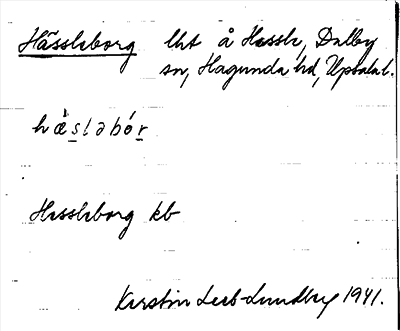 Hässleborg lht å Hessle, Dalby
sn, Hagunda hd, Upsala l.
hæ̀slabór
Hessleborg kb
Kerstin Leeb-Lundberg 1941.